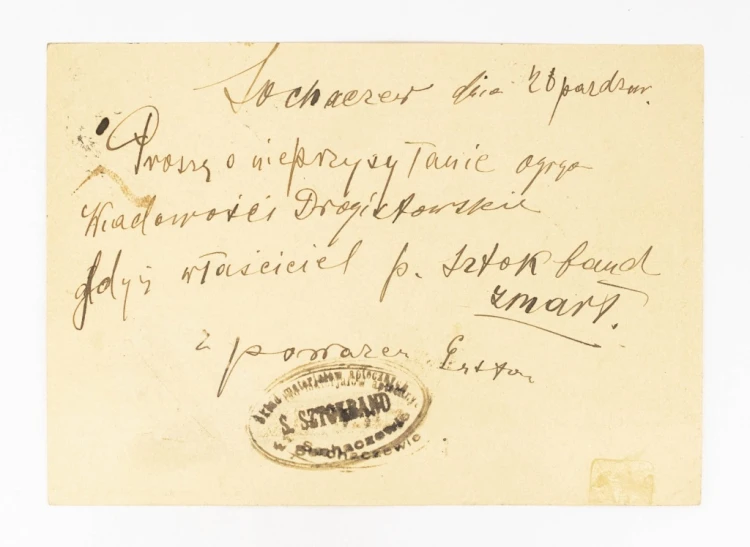 Sochaczew dnia 26 paźdzr.
Proszę o nieprzysyłanie
Wiadomości Drogistowskie
gdyż właściciel p. Sztokband
zmarł.
z poważan.
Skład materjałów aptecznych
S. SZTOKBAND
w Sochaczewie